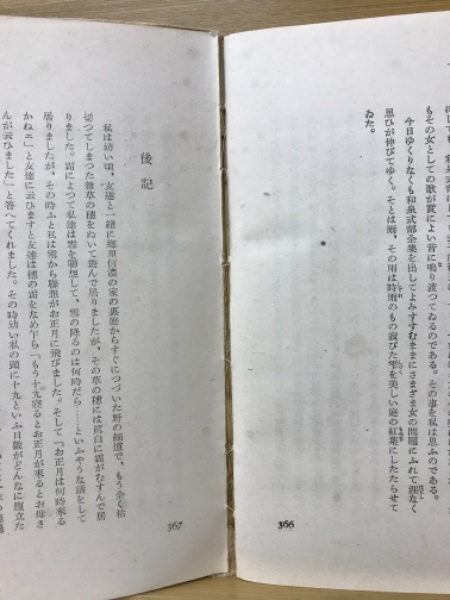 もその女としての歌が實によい音に鳴り渡つてゐるのである。その事を私は思ふのである。
今日ゆくりなくも和泉式部全集を出してよみすすむままにさまざま女の問題にふれて涯なく
思ひが伸びてゆく。そとは雨、その雨は時雨のもの寂びた雫を美しい庭の紅葉にしたたらせて
ゐた。
366
後記
私は幼い頃、友達と一緒に鄕里信濃の家の裏庭からすぐにつづいた野の細道で、もう全く枯
切つてしまつた雜草の穗をぬいて遊んで居りましたが、その草の穗には眞白に霜がむすんで居
りました。霜によつて私達は雪を聯想して、雪の降るのは何時だら……といふやうな話をして
居りましたが、その時ふと私は雪から聯想がお正月に飛びました。そして「お正月は何時來る
かねェ」と友達に云ひますと友達は穗の霜をなめ乍ら「もう十九寢るとお正月が來るとお母さ
んが云ひました」と答へてくれました。その時幼い私の頭に十九といふ日數がどんなに腹立た
367